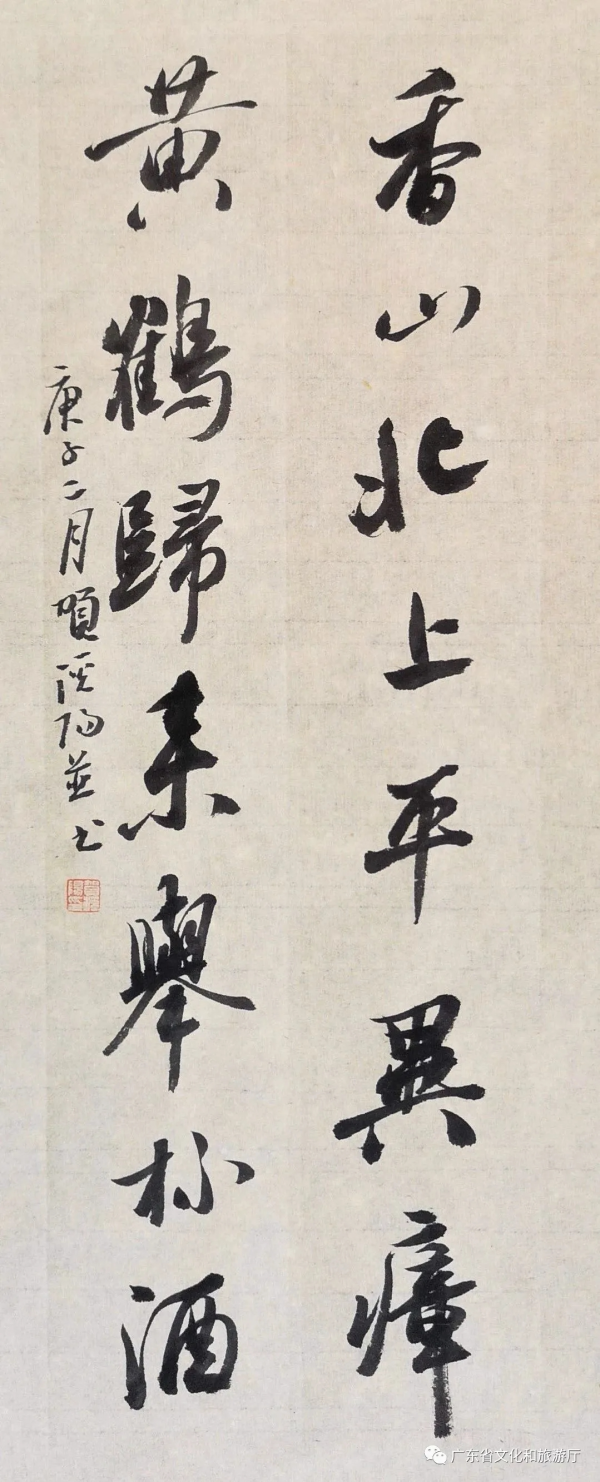 香山北上平異瘴
黃鶴歸来舉杯酒
庚子二月
並書
广东省文化和旅游厅